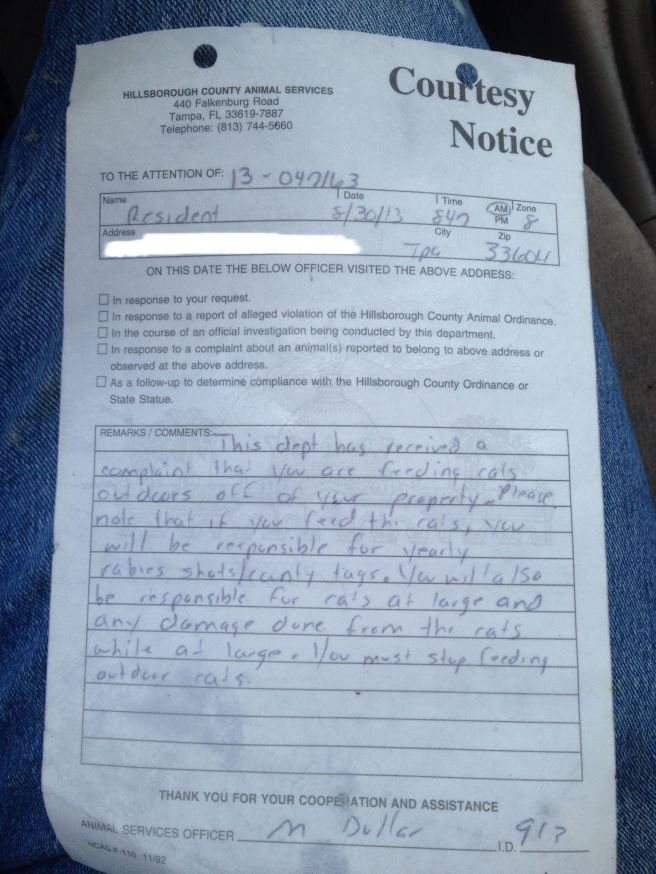 HILLSBOROUGH COUNTY ANIMAL SERVICES
440 Falkenburg Road
Tampa, FL 33619-7887
Telephone: (813) 744-5660
Courtesy
Notice
TO THE ATTENTION OF: 13-047163
Name Date Time AM Zone
Resident 8/30/13 847 PM 8
Address City Zip
Tpa 33604
ON THIS DATE THE BELOW OFFICER VISITED THE ABOVE ADDRESS:
☐ In response to your request.
☐ In response to a report of alleged violation of the Hillsborough County Animal Ordinance.
☐ In the course of an official investigation being conducted by this department.
☐ In response to a complaint about an animal(s) reported to belong to above address or
observed at the above address.
☐ As a follow-up to determine compliance with the Hillsborough County Ordinance or
State Statue.
REMARKS / COMMENTS: This dept has received a
complaint that you are feeding cats
outdoors off of your property. Please
note that if you feed the cats, you
will be responsible for yearly
rabies shots/county tags. You will also
be responsible for cats at large and
any damage done from the cats
while at large. You must stop feeding
outdoor cats.
THANK YOU FOR YOUR COOPERATION AND ASSISTANCE
ANIMAL SERVICES OFFICER M Dullar I.D. 913
HCAS-F-110 11/92